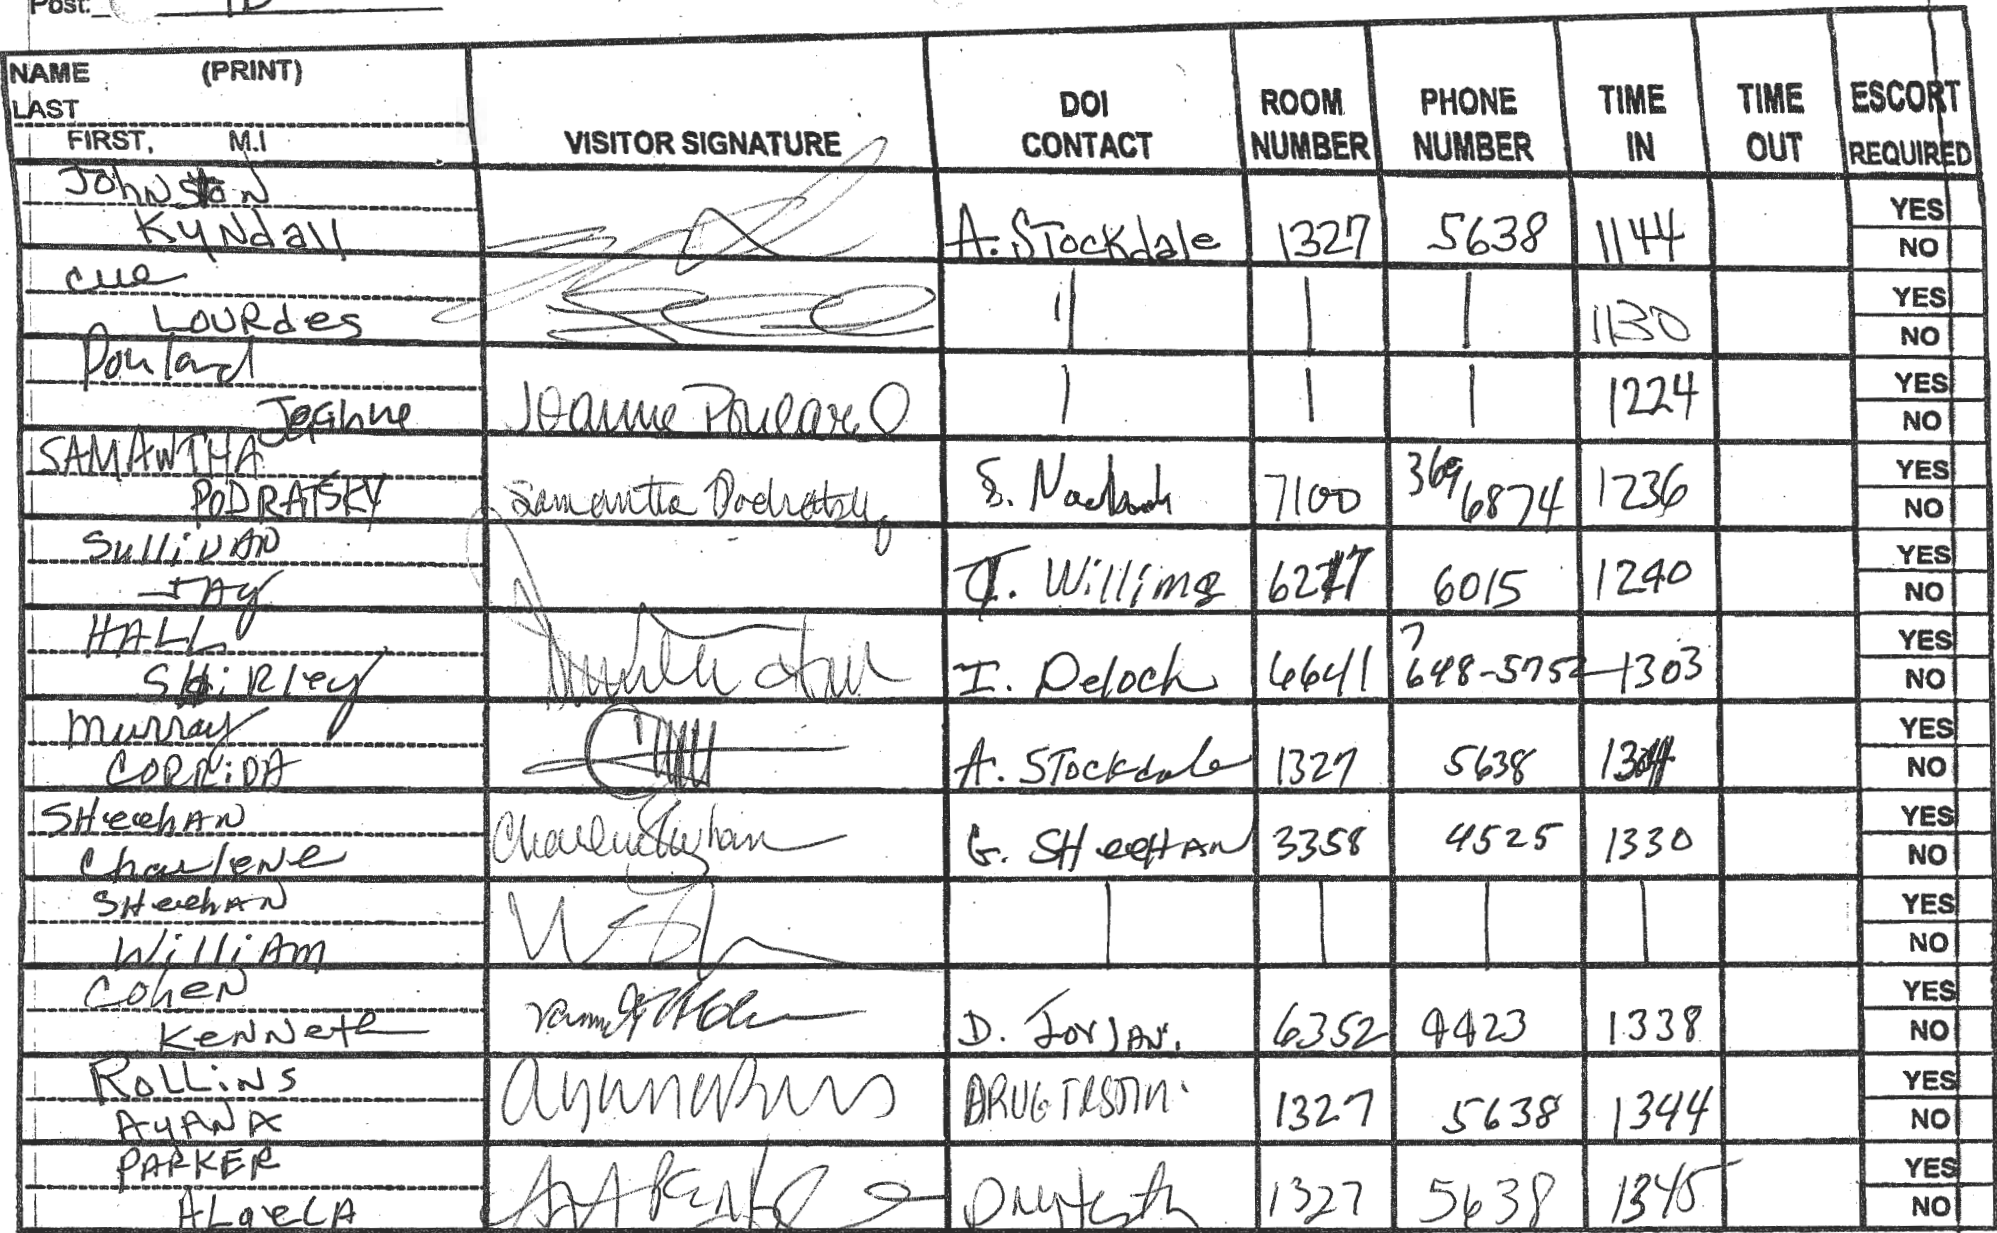 Post:
NAME (PRINT)
LAST
FIRST, M.I
VISITOR SIGNATURE
DOI CONTACT
ROOM NUMBER
PHONE NUMBER
TIME IN
TIME OUT
ESCORT REQUIRED
Johnston
Kyndall
A. Stockdale 1327 5638 1144 YES NO
Cue
Lourdes
1130 YES NO
Poulard
Joanne
Joanne Poulard 1224 YES NO
SAMANTHA
PODRATSKY
Samantha Podratsky 7100 369 6874 1236 YES NO
Sullivan
JAY
Willims 6015 1240 YES NO
HALL
Shirley
I. Deloch 6641 1303 YES NO
Murray
CORRiDA
A. Stockdale 1327 5638 YES NO
SHeehAN
CharleNe
Charlene Sheehan G. SHeeHAN 3358 4525 1330 YES NO
SHeehAN
WilliAm
YES NO
CoheN
KeNNeth
D. JorDAN. 6352 4423 1338 YES NO
RoLLiNS
AyANA
DRUG TESTIN 1327 5638 1344 YES NO
PARKER
1327 5638 1345 YES NO